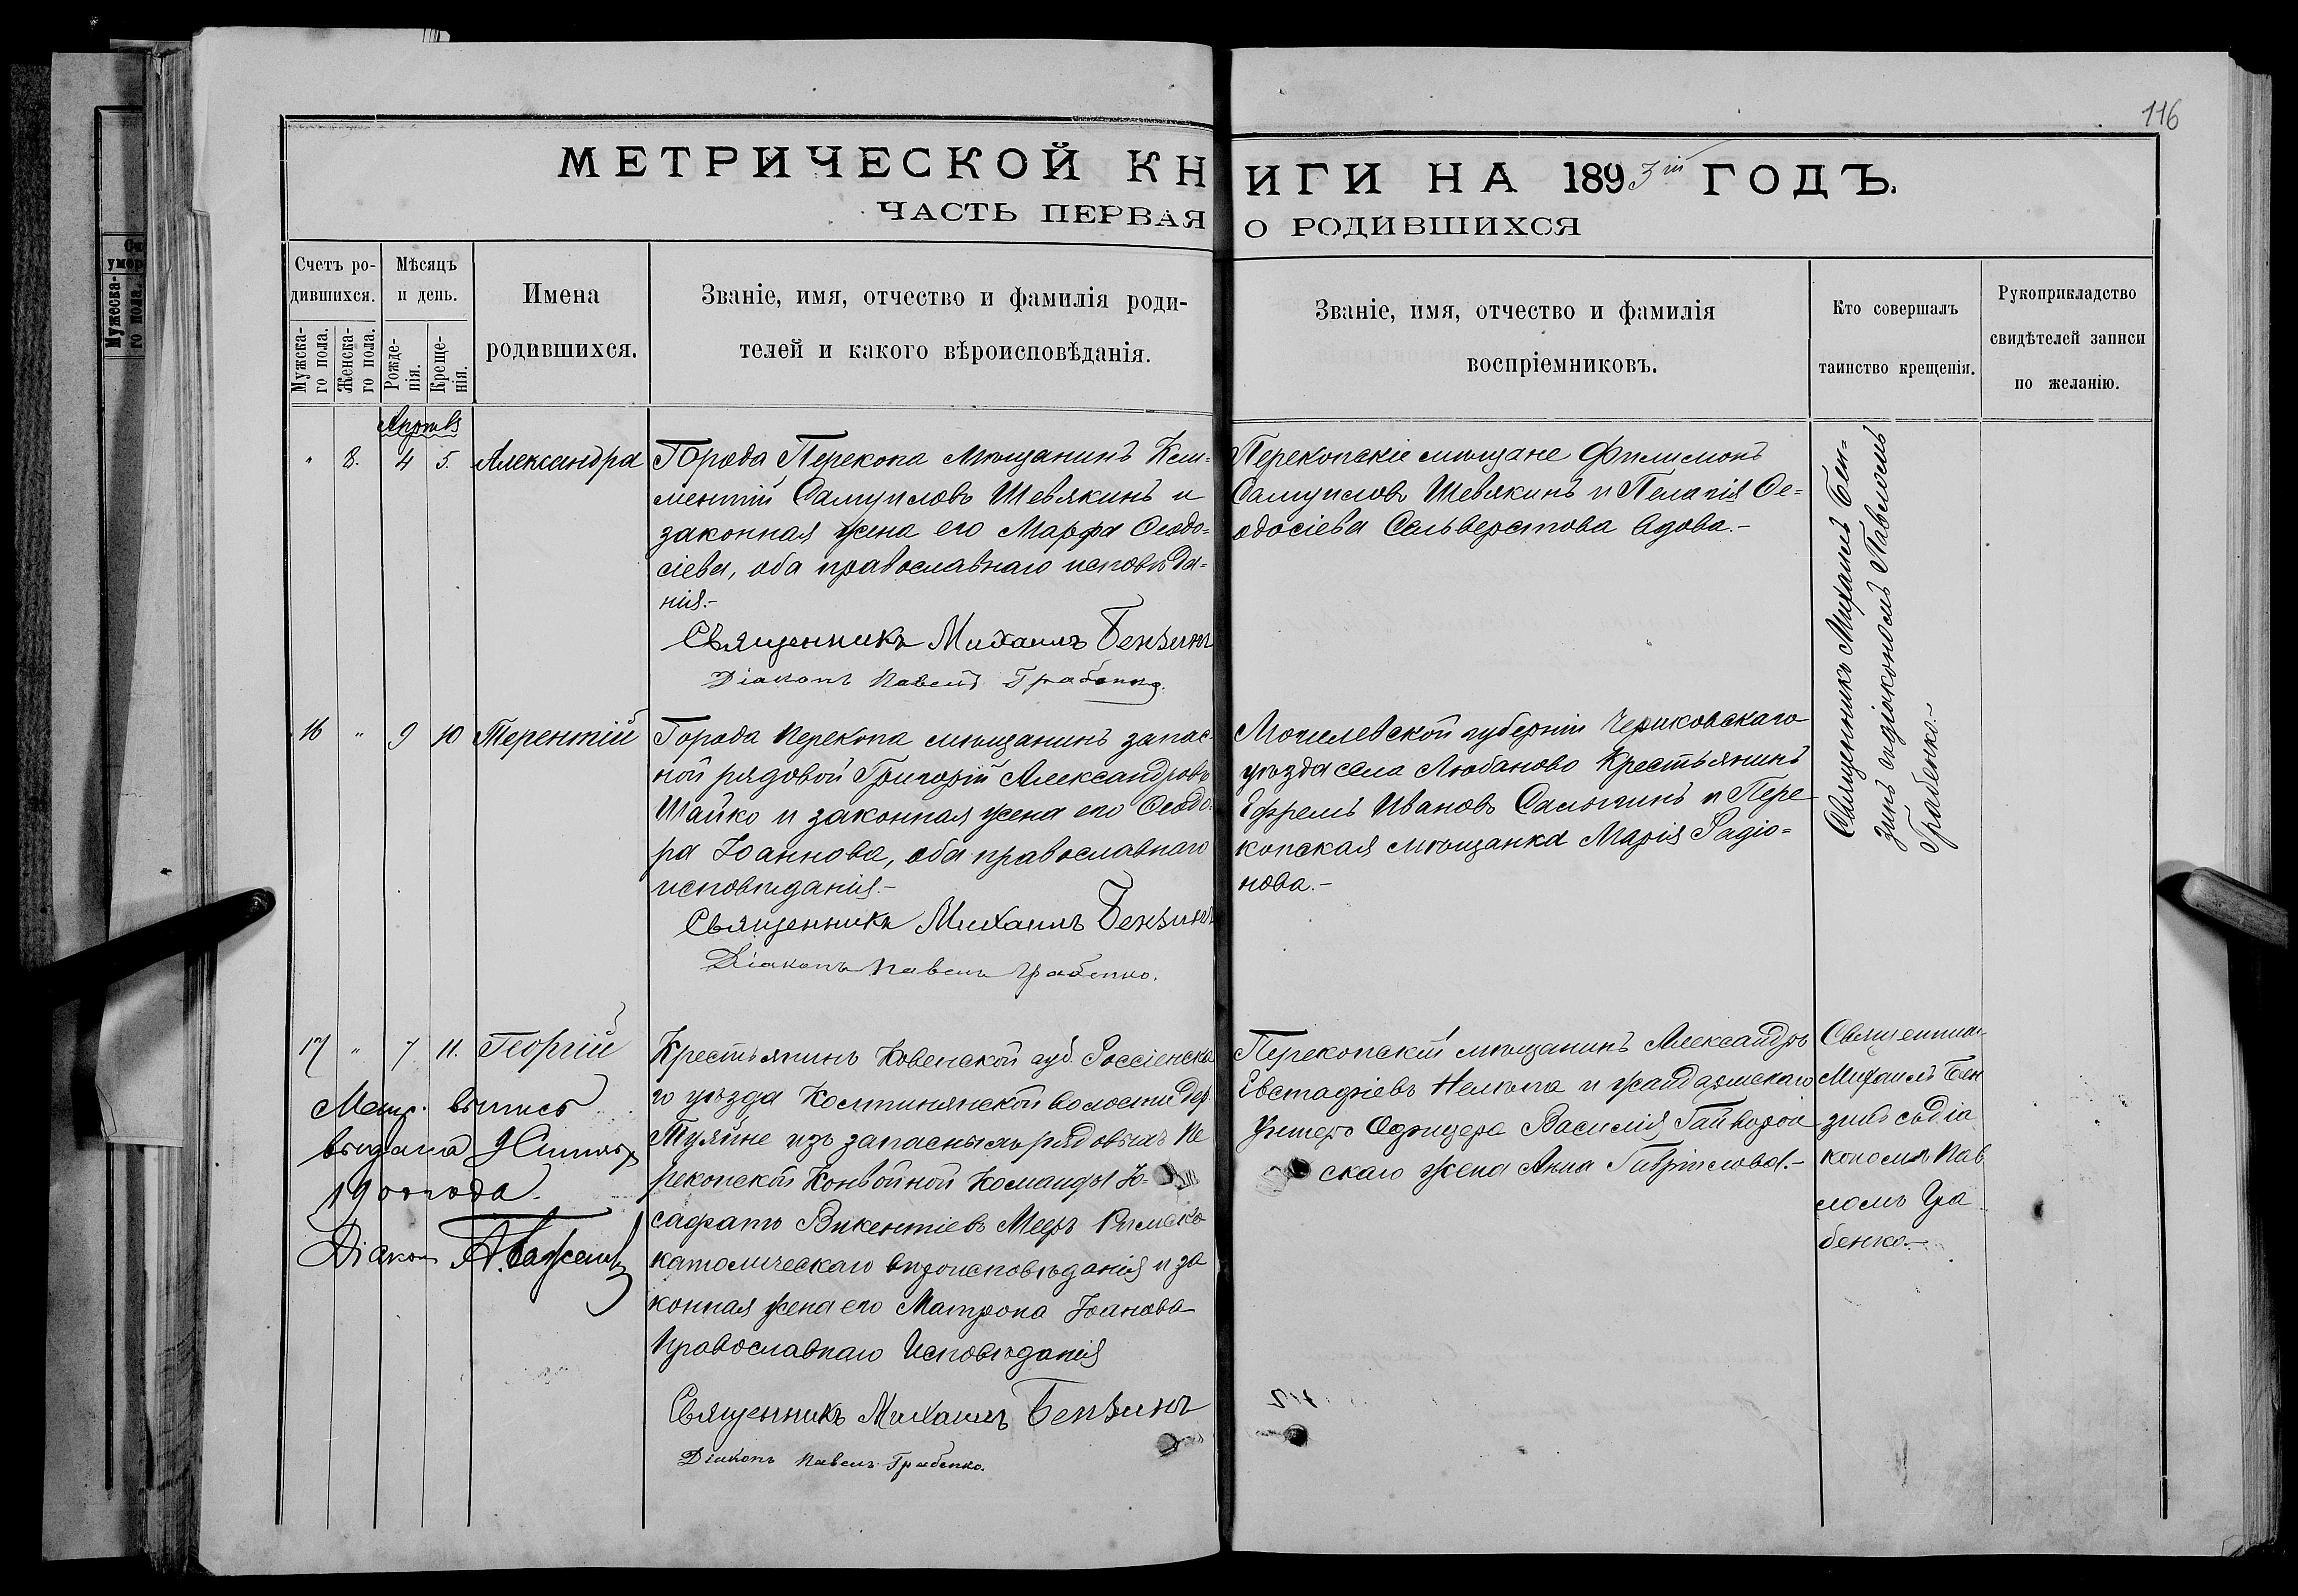 116
МЕТРИЧЕСКОЙ КНИГИ НА 1893ій ГОДЪ.
ЧАСТЬ ПЕРВАЯ О РОДИВШИХСЯ
Счетъ ро-
дившихся.
Мужска-
го пола.
Женска-
го пола.
Мѣсяцъ
и день.
Рожде-
нія.
Креще-
нія.
Имена
родившихся.
Званіе, имя, отчество и фамилія роди-
телей и какого вѣроисповѣданія.
Званіе, имя, отчество и фамилія
воспріемниковъ.
Кто совершалъ
таинство крещенія.
Рукоприкладство
свидѣтелей записи
по желанію.
" 8. 4 5. Александра
Города Перекопа мѣщанинъ Кли-
ментій Самуиловъ Шевякинъ и
законная жена его Марфа Ѳеодо-
сіева, оба православнаго исповѣда-
нія.-
Священникъ Михаилъ Бензинъ
Діаконъ Павелъ Грабенко.
Перекопскіе мѣщане Филимонъ
Самуиловъ Шевякинъ и Пелагія Ѳе-
одосіева Сельверстова вдова.-
Священникъ Михаилъ Бен-
зинъ съ діакономъ Павломъ
Грабенко.-
16 " 9 10 Терентій
Города Перекопа мѣщанинъ запас-
ной рядовой Григорій Александровъ
Шайко и законная жена его Ѳеодо-
ра Іоаннова, оба православнаго
исповѣданія.-
Священникъ Михаилъ Бензинъ
Діаконъ Павелъ Грабенко.
Могилевской губерніи Чериковскаго
уѣзда села Любаново Крестьянинъ
Ефремъ Ивановъ и Пере
копская мѣщанка Марія Радіо-
нова.-
17 " 7 11. Георгій
Метр. выпись
выдана 9
190 года.
Діаконъ
Крестьянинъ Ковенской губ. Россіенска
го уѣзда волости дер.
изъ запасныхъ рядовыхъ Пе
рекопской Конвойной Команды Іо-
сафатъ Викентіевъ Меръ Римско
католическаго вѣроисповѣданія и за
конная жена его Матрона Іоанова
Православнаго Исповѣданія
Священникъ Михаилъ Бензинъ
Діаконъ Павелъ Грабенко.
Перекопскій мѣщанинъ Александръ
Евстафіевъ и жандармскаго
Унтеръ Офицера Василія
скаго жена Анна Гавріилова.-
Священникъ
Михаилъ Бен
зинъ съ діа
кономъ Пав
ломъ Гра
бенко.-